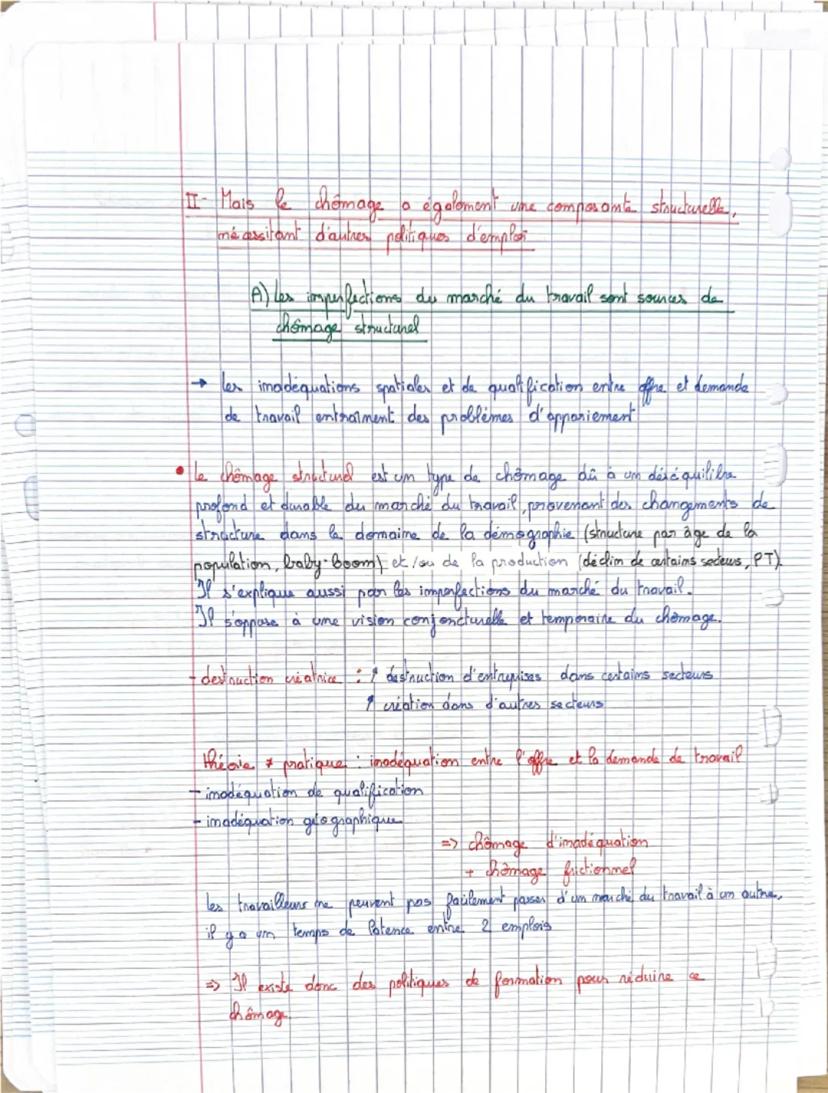 II- Mais le chômage a également une composante structurelle,
nécessitant d'autres politiques d'emploi
A) Les imperfections du marché du travail sont sources de
chômage structurel
→ Les inadéquations spatiales et de qualification entre offre et demande
de travail entraînent des problèmes d'appariement
• Le chômage structurel est un type de chômage dû à un déséquilibre
profond et durable du marché du travail, provenant des changements de
structure dans le domaine de la démographie (structure par âge de la
population, baby-boom) et/ou de la production (déclin de certains secteurs, PT).
Il s'explique aussi par les imperfections du marché du travail.
Il s'oppose à une vision conjoncturelle et temporaire du chômage.
- destruction créatrice : ↑ destruction d'entreprises dans certains secteurs
↑ création dans d'autres secteurs
théorie ≠ pratique : inadéquation entre l'offre et la demande de travail
- inadéquation de qualification
- inadéquation géographique
=> chômage d'inadéquation
+ chômage frictionnel
Les travailleurs ne peuvent pas facilement passer d'un marché du travail à un autre,
il y a un temps de latence entre 2 emplois
=> Il existe donc des politiques de formation pour réduire ce
chômage